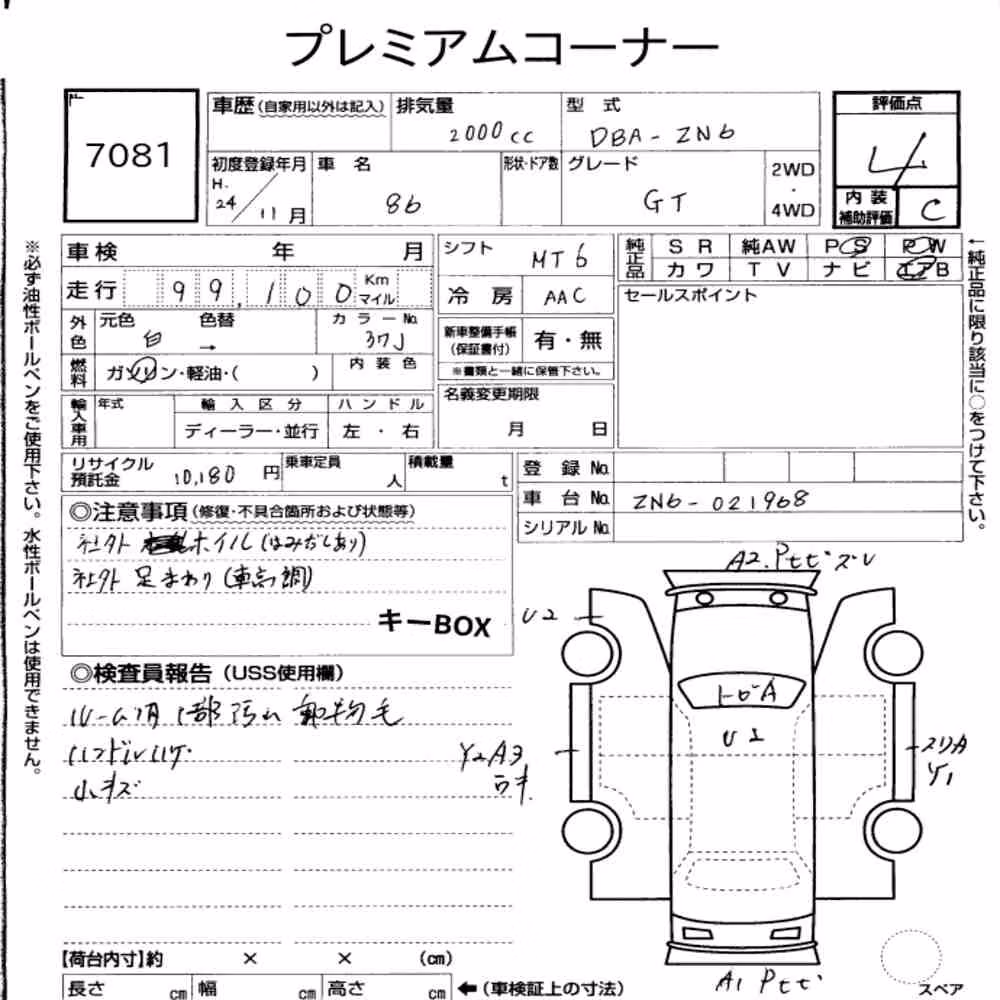 プレミアムコーナー
7081
車歴(自家用以外は記入) 排気量 型 式 評価点
2000cc DBA-ZN6 4
初度登録年月 車 名 形状・ドア数 グレード 2WD・4WD
H.24/11月 86 GT
内装補助評価 C
車検 年 月 シフト MT6
純正品 SR 純AW PS PW
カワ TV ナビ エアB
走行 99,100 Km マイル
冷 房 AAC
セールスポイント
外色 元色 色替 カラーNo.
白 → 37J
新車整備手帳(保証書付) 有・無
※書類と一緒に保管下さい。
燃料 ガソリン・軽油・( ) 内装色
名義変更期限
月 日
輸入車用 年式 輸入区分 ハンドル
ディーラー・並行 左・右
リサイクル預託金 10,180円 乗車定員 人 積載量 t
登 録 No.
車 台 No. ZN6-021968
シリアル No.
◎注意事項(修復・不具合箇所および状態等)
社外 ホイル(はみだしあり)
社外 足まわり(車高調)
キーBOX
◎検査員報告(USS使用欄)
ルーム内 汚れ
ハンドルハゲ
小キズ
A2.
U2
U2
Y2A3
スリA
Y1
A1
【荷台内寸】約 × × (cm)
長さ cm 幅 cm 高さ cm ←(車検証上の寸法)
スペア
※必ず油性ボールペンをご使用下さい。水性ボールペンは使用できません。
↑純正品に限り該当に○をつけて下さい。